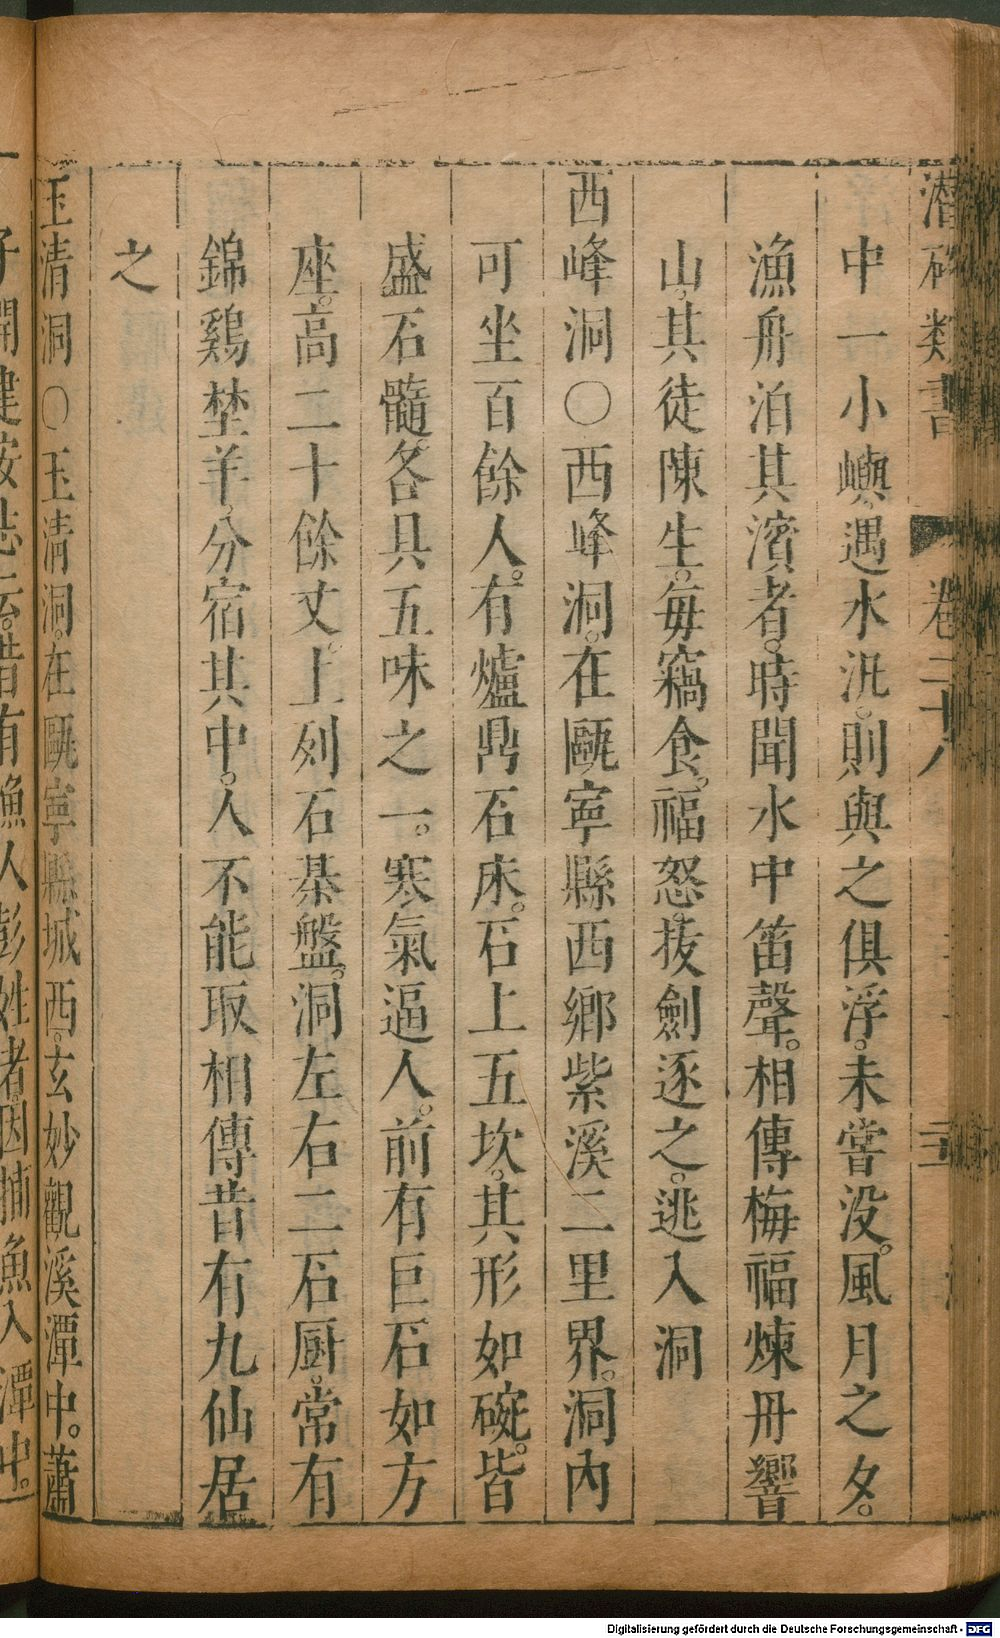 潛確類書 卷二十八
中一小嶼。遇水汎。則與之俱浮。未嘗没。風月之夕。
漁舟泊其濱者。時聞水中笛聲。相傳梅福煉丹響
山。其徒陳生。每竊食。福怒。拔劍逐之。逃入洞
西峰洞○西峰洞。在甌寧縣西鄉紫溪二里界。洞内
可坐百餘人。有爐鼎石床。石上五坎。其形如碗。皆
盛石髓。各具五味之一。寒氣逼人。前有巨石如方
座。高二十餘丈。上列石棊盤。洞左右二石厨。常有
錦鷄埜羊。分宿其中。人不能取相傳昔有九仙居
之
玉清洞○玉清洞。在甌寧縣城西。玄妙觀溪潭中。蕭
子開建安志云。昔有漁人彭姓者。因捕魚入潭中。
Digitalisierung gefördert durch die Deutsche Forschungsgemeinschaft - DFG